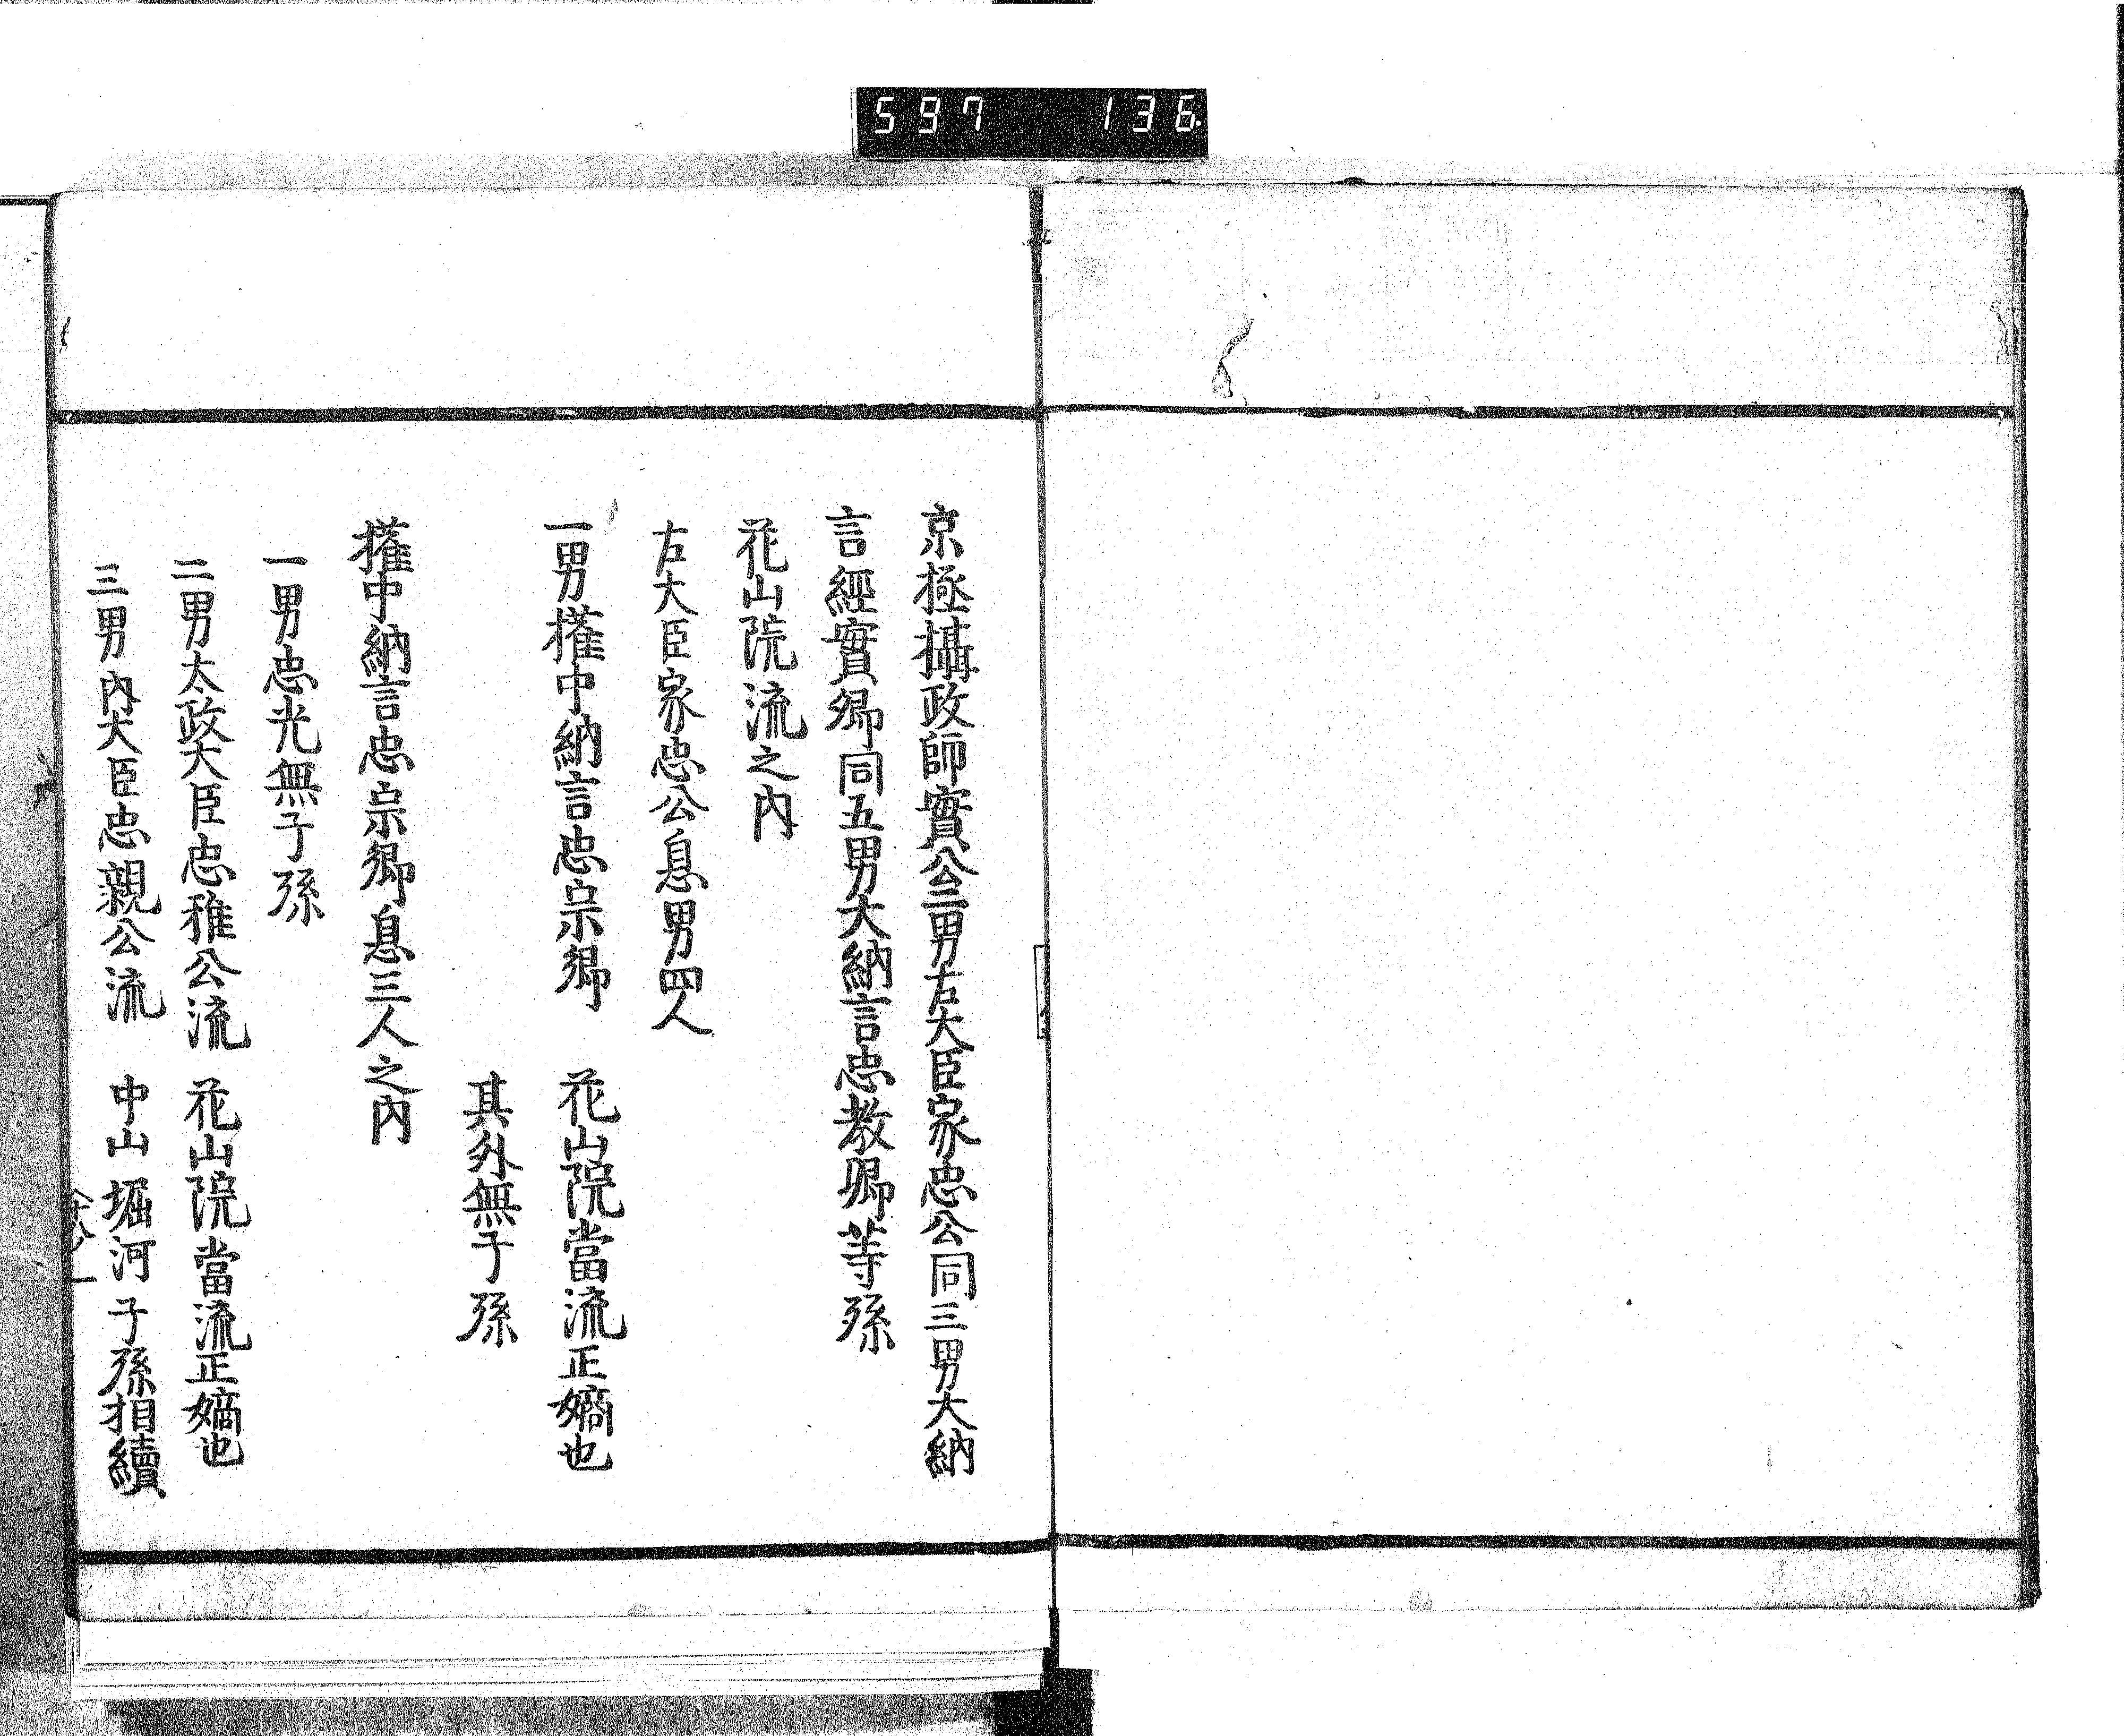 597 136
京極攝政師實公二男左大臣家忠公同三男大納
言經實卿同五男大納言忠教卿等孫
花山院流之內
左大臣家忠公息男四人
一男權中納言忠宗卿 花山院當流正嫡也
其外無子孫
權中納言忠宗卿息三人之內
一男忠光無子孫
二男太政大臣忠雅公流 花山院當流正嫡也
三男內大臣忠親公流 中山堀河子孫相續